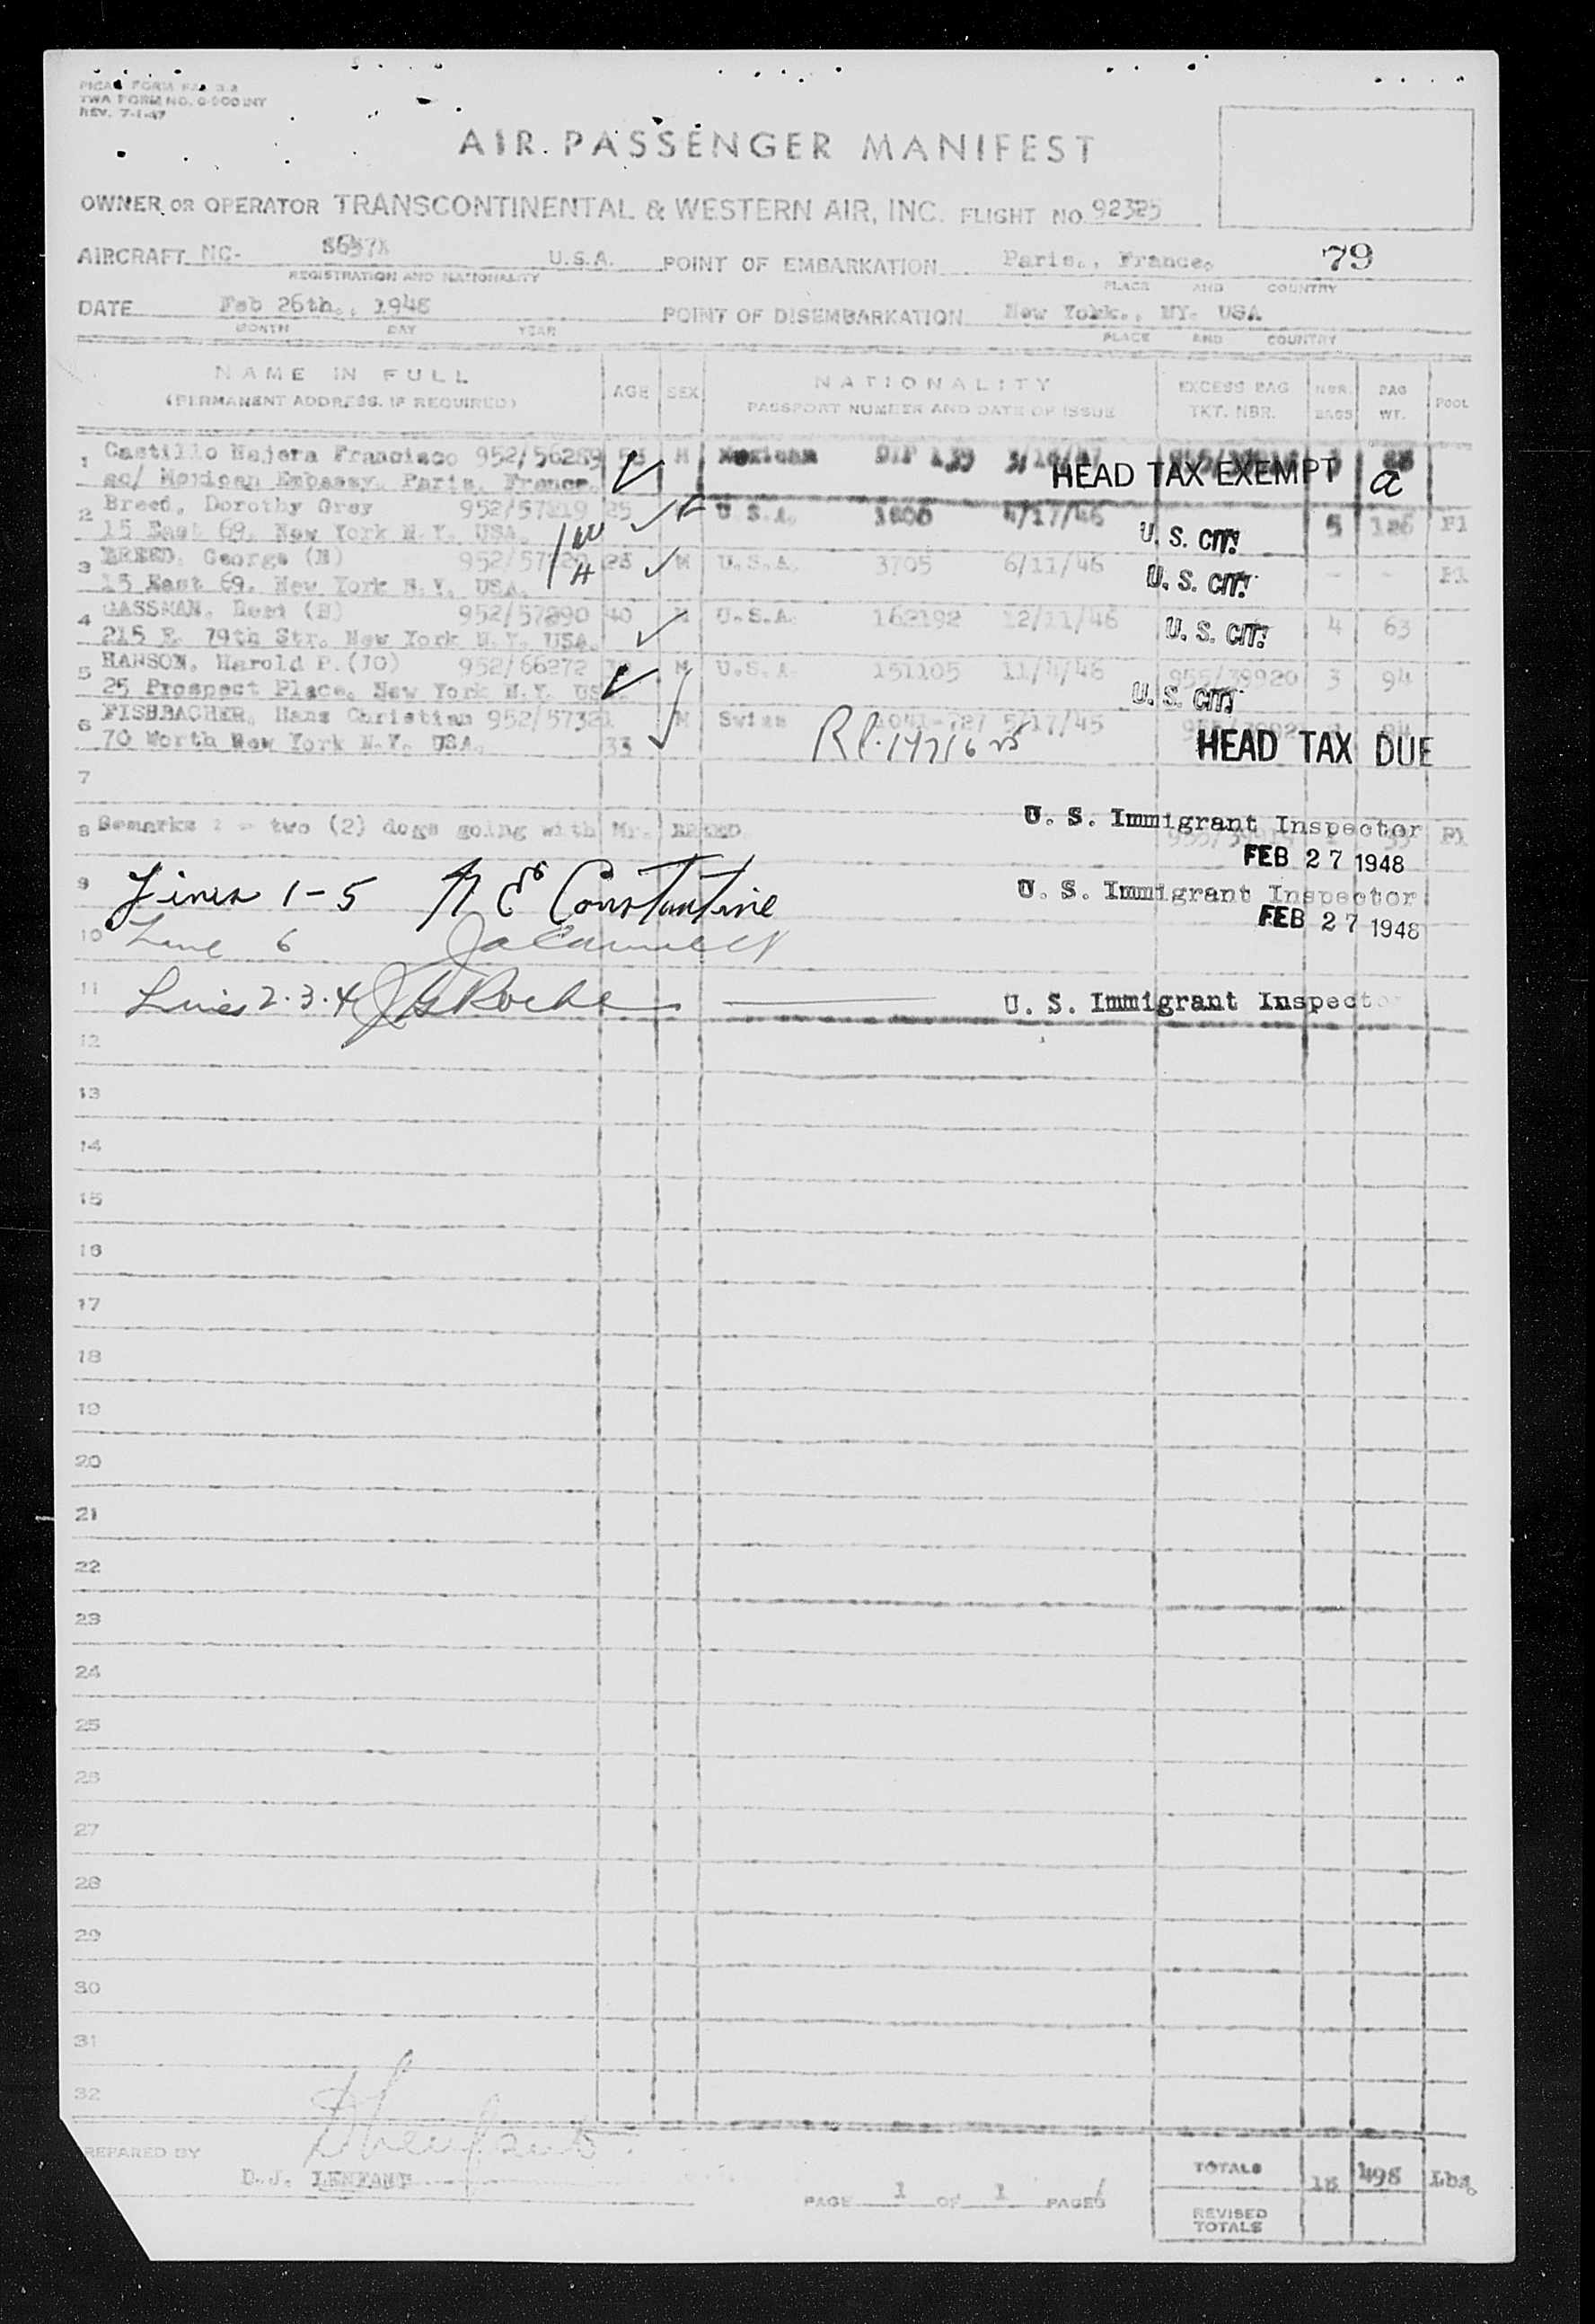 TWA FORM NO.
REV. 7-1-47
AIR PASSENGER MANIFEST
OWNER OR OPERATOR TRANSCONTINENTAL & WESTERN AIR, INC. FLIGHT NO. 92325
AIRCRAFT NC- U.S.A. POINT OF EMBARKATION Paris., France. 79
REGISTRATION AND NATIONALITY PLACE AND COUNTRY
DATE Feb 26th., 1948 POINT OF DISEMBARKATION New Yokk., NY. USA
MONTH DAY YEAR PLACE AND COUNTRY
NAME IN FULL AGE SEX NATIONALITY EXCESS BAG NBR. BAG POOL
(PERMANENT ADDRESS, IF REQUIRED) PASSPORT NUMBER AND DATE OF ISSUE TKT. NBR. BAGS WT.
1 Castillo Najera Francisco 952/56289 53 M Mexican DIP 139
ac/ Mexican Embassy. Paris. France. HEAD TAX EXEMPT a
2 Breed, Dorothy Grey 952/57219 25 U.S.A. 4/17/46 5 126 P1
15 East 69. New York N.Y. USA. U. S. CIT.
3 BREED. George (H) M U.S.A. 3705 6/11/46 - - P1
15 East 69. New York N.Y. USA. U. S. CIT.
4 GASSMAN. 952/57890 40 M U.S.A. 162192 12/11/46 4 63
215 E. 79th Str. New York N.Y. USA. U. S. CIT.
5 HANSON. Harold P.(JO) 952/66272 M U.S.A. 151105 11/4/46 955/39920 3 94
25 Prospect Place. New York N.Y. US U. S. CIT.
6 FISHBACHER. Hans Christian 952/57321 M Swiss 5/17/45
70 Worth New York N.Y. USA. 33 HEAD TAX DUE
7
8 Remarks : - two (2) dogs going with Mr. BREED P1
U. S. Immigrant Inspector
FEB 27 1948
9 Lines 1-5 N E Constantine U. S. Immigrant Inspector
FEB 27 1948
10 Line 6
11 Lines 2.3.4 Roche U. S. Immigrant Inspector
12
13
14
15
16
17
18
19
20
21
22
23
24
25
26
27
28
29
30
31
32
PREPARED BY
D.J. LENFANT
PAGE 1 OF 1 PAGES
TOTALS 18 498 Lbs.
REVISED
TOTALS